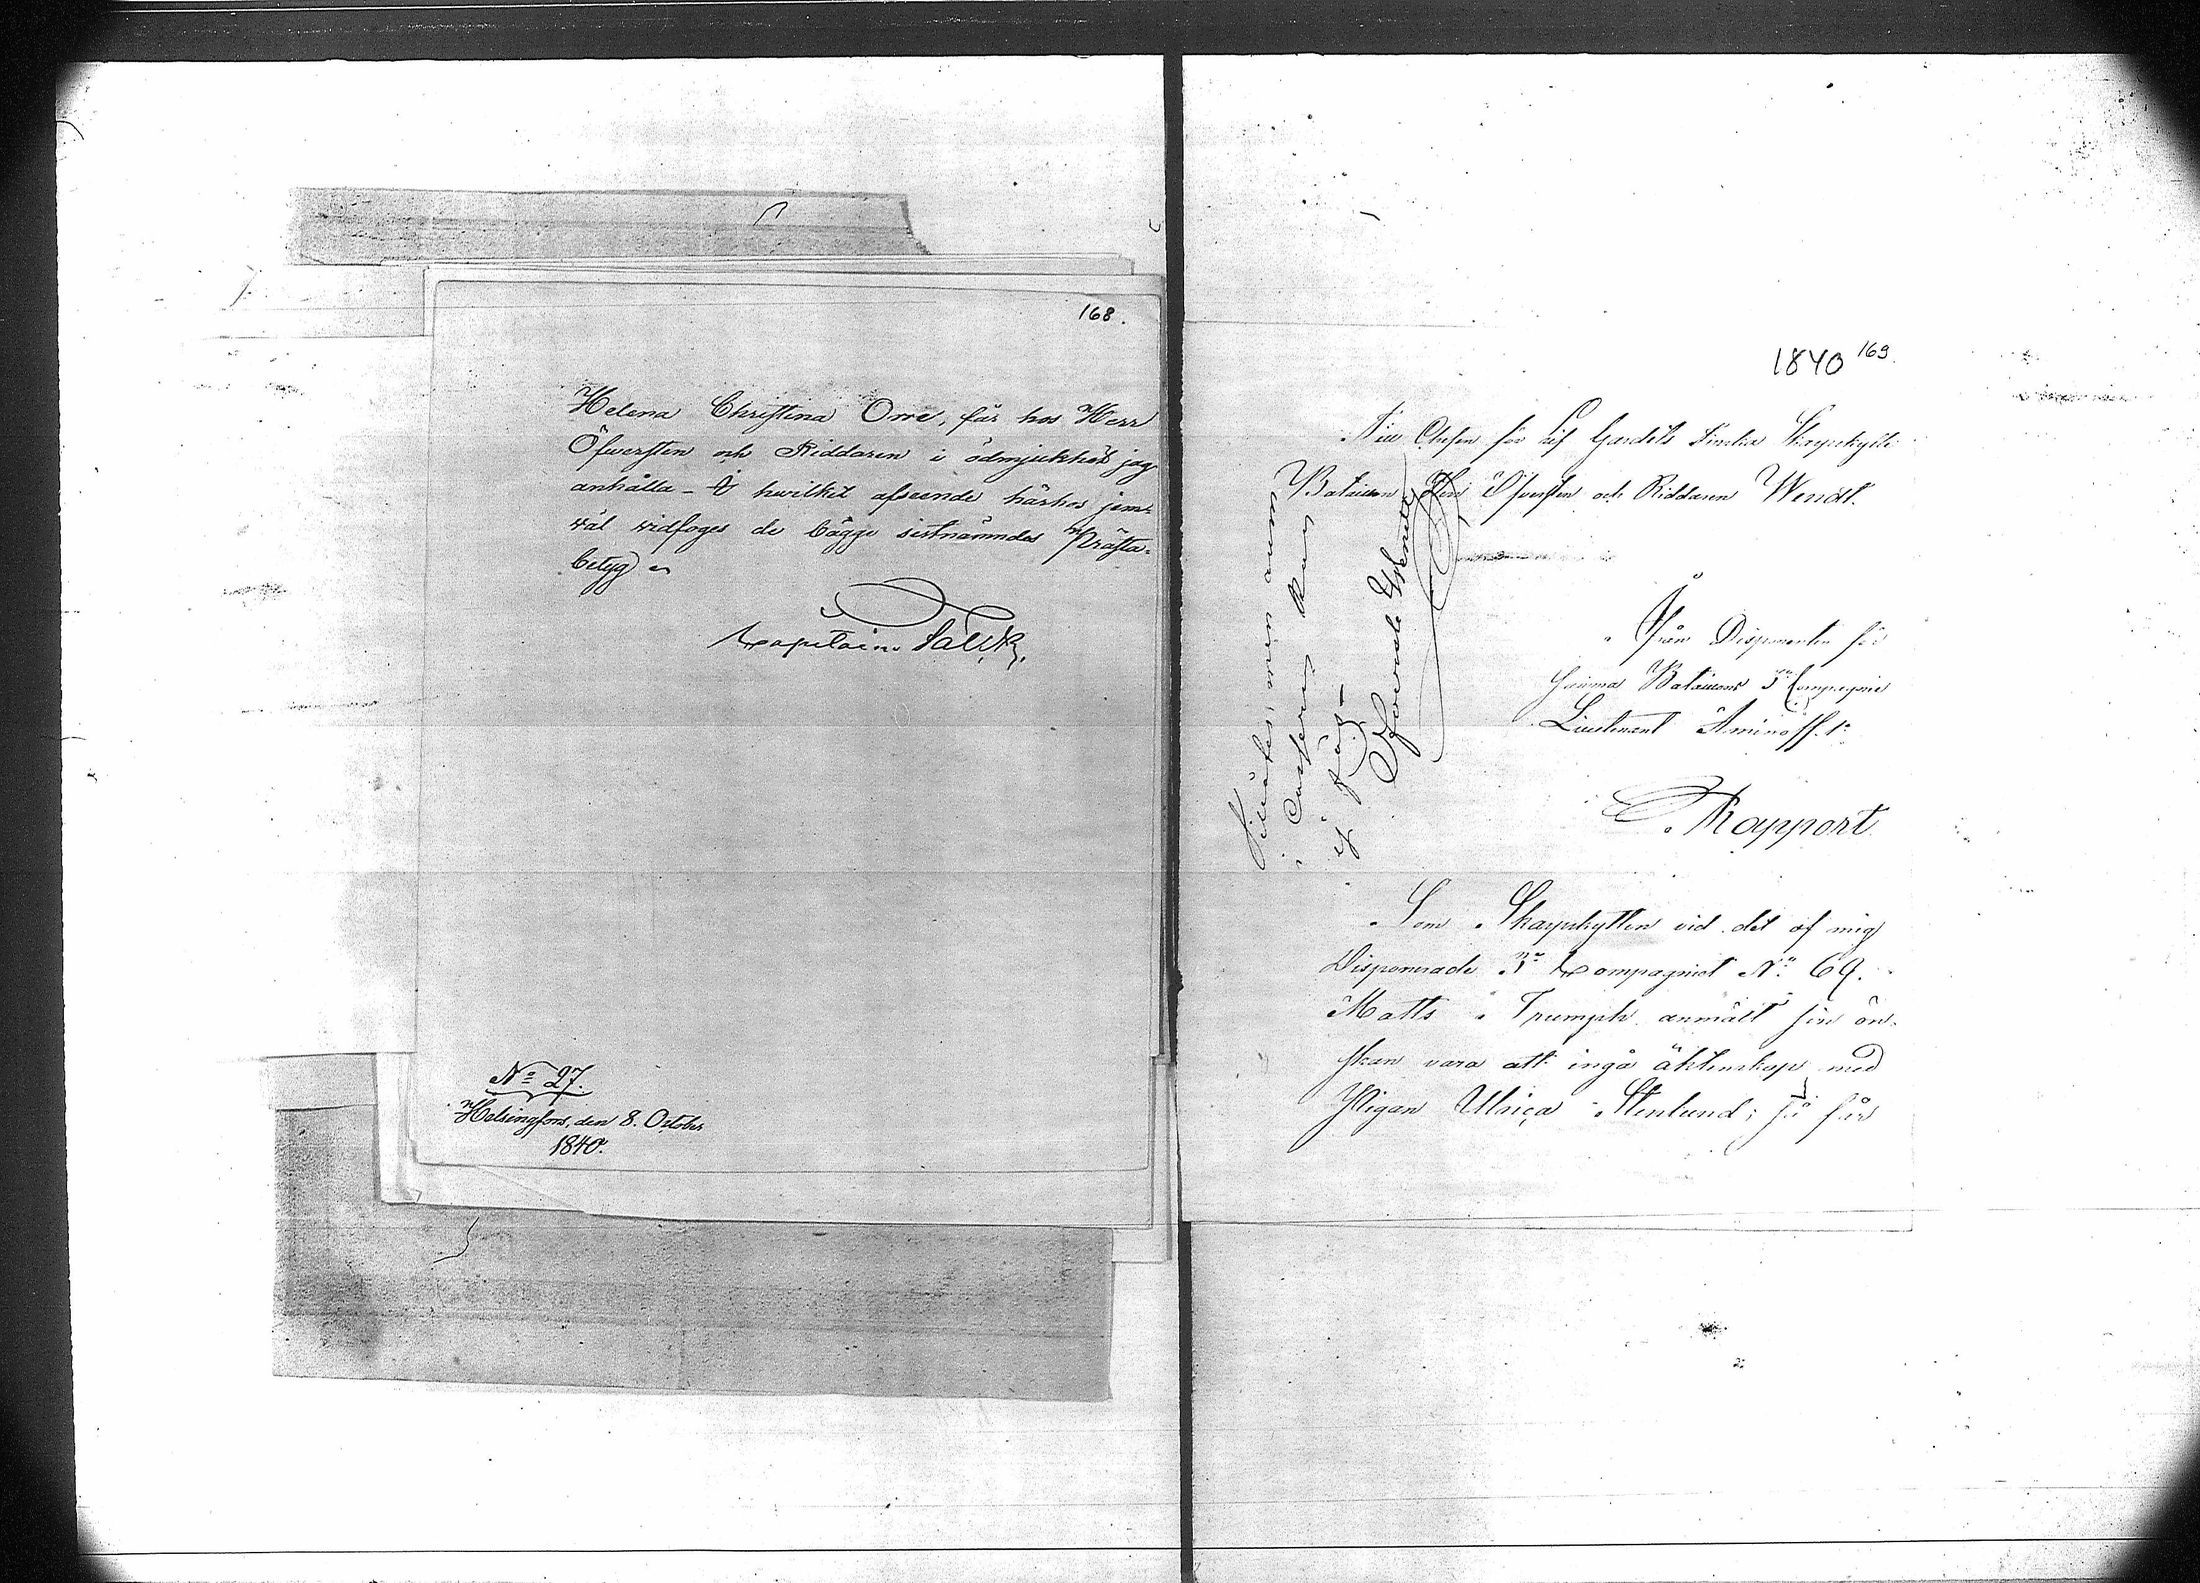 168.
Helena Christina Orre, får hos Herr
Öfwersten och Riddaren i ödmjukhet jag
anhålla – I hwilket afseende härhos jem-
väl vidfoges de bägge sistnämndas Prästa-
betyg
Capitain Falck.
No 27.
Helsingfors, den 8. October
1840.
1840 169.
Till Chefen för Lif Gardets Finska Skarpskytte
Bataillon Herr Öfversten och Riddaren Wendt.
Från Disponenten för
samma Bataillons 3ne Compagnie
Lieutenant Aminoff. 1e
Rapport
Som Skarpskytten vid det af mig
Disponerade 3ne Compagniet No 69.
Matts Trumph anmält sin ön-
skan vara att ingå äktenskap med
Pigan Ulrica Stenlund; så får
Tillåtes, men rum
i Casern kan
ej fås –
Öfverste Wendt